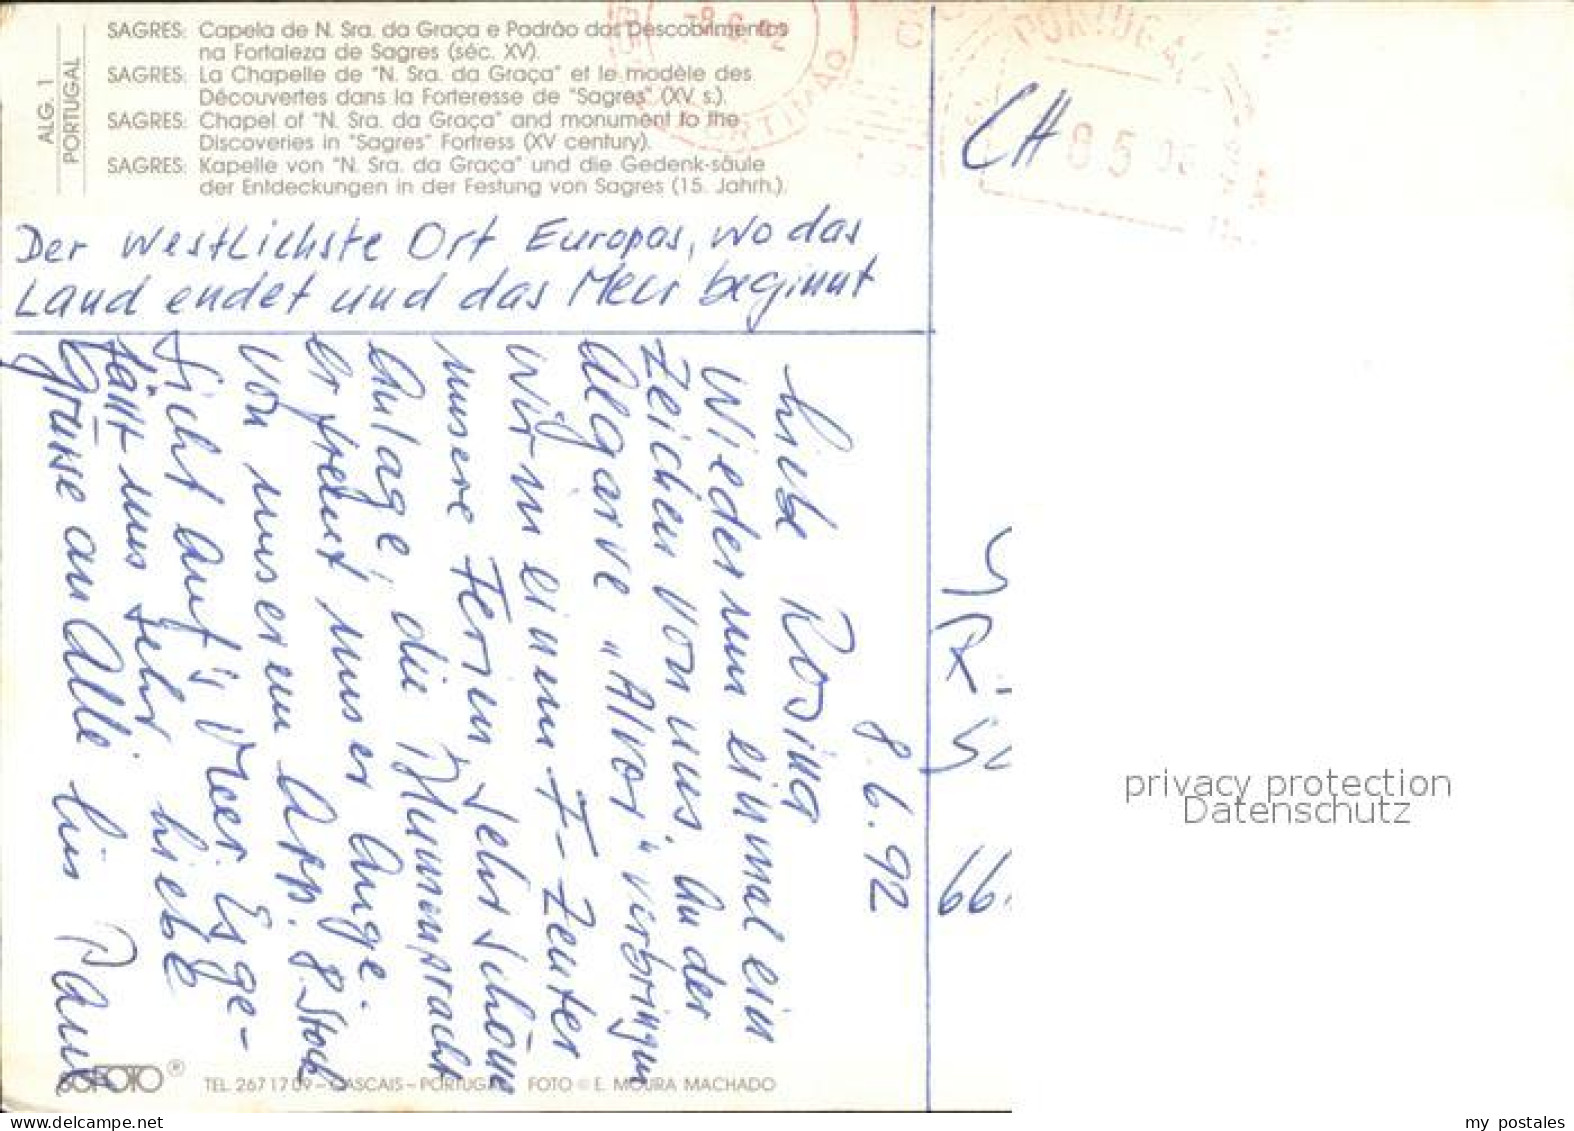 SAGRES: Capela de N. Sra. da Graça e Padrão dos Descobrimentos
na Fortaleza de Sagres (séc. XV).
SAGRES: La Chapelle de "N. Sra. da Graça" et le modèle des
Découvertes dans la Forteresse de "Sagres" (XV s.).
SAGRES: Chapel of "N. Sra. da Graça" and monument to the
Discoveries in "Sagres" Fortress (XV century).
SAGRES: Kapelle von "N. Sra. da Graça" und die Gedenk-säule
der Entdeckungen in der Festung von Sagres (15. Jahrh.).
ALG. 1
PORTUGAL
PORTUGAL
CH
Der westlichste Ort Europas, wo das
Land endet und das Meer beginnt
8.6.92
Liebe Rosina
Wiederum einmal ein
Zeichen von uns. An der
Algarve "Alvor" verbringen
wir in einem F-Zenter
unsere Ferien sehr schöne
Anlage, die Blumenpracht
erfreut unser Auge.
von unserem App. 8. Stock
Sicht auf's Meer. Es ge-
fällt uns sehr liebe
Grüsse an Alle
66.
privacy protection
Datenschutz
SOFOTO ®
TEL. 2671709 - CASCAIS - PORTUGAL FOTO © E. MOURA MACHADO
www.delcampe.net
my postales